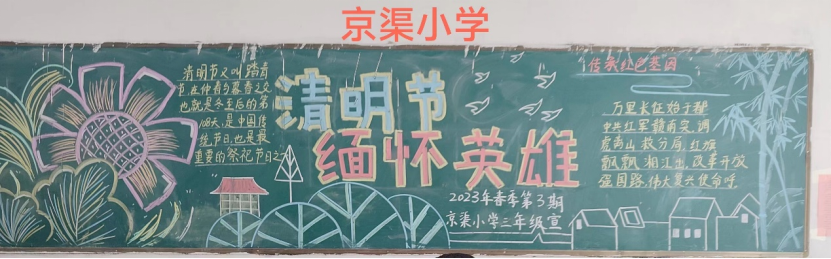 京渠小学
清明节又叫踏青
节,在仲春与暮春之交
也就是冬至后的第
108天,是中国传
统节日,也是最
重要的祭祀节日之一
清明节
缅怀英雄
2023年春季第3期
京渠小学三年级宣
传承红色基因
万里长征始于驿
中共红军赣南突,调
虎离山,救分局,红旗
飘飘,湘江出,改革开放
强国路,伟大复兴使命呼